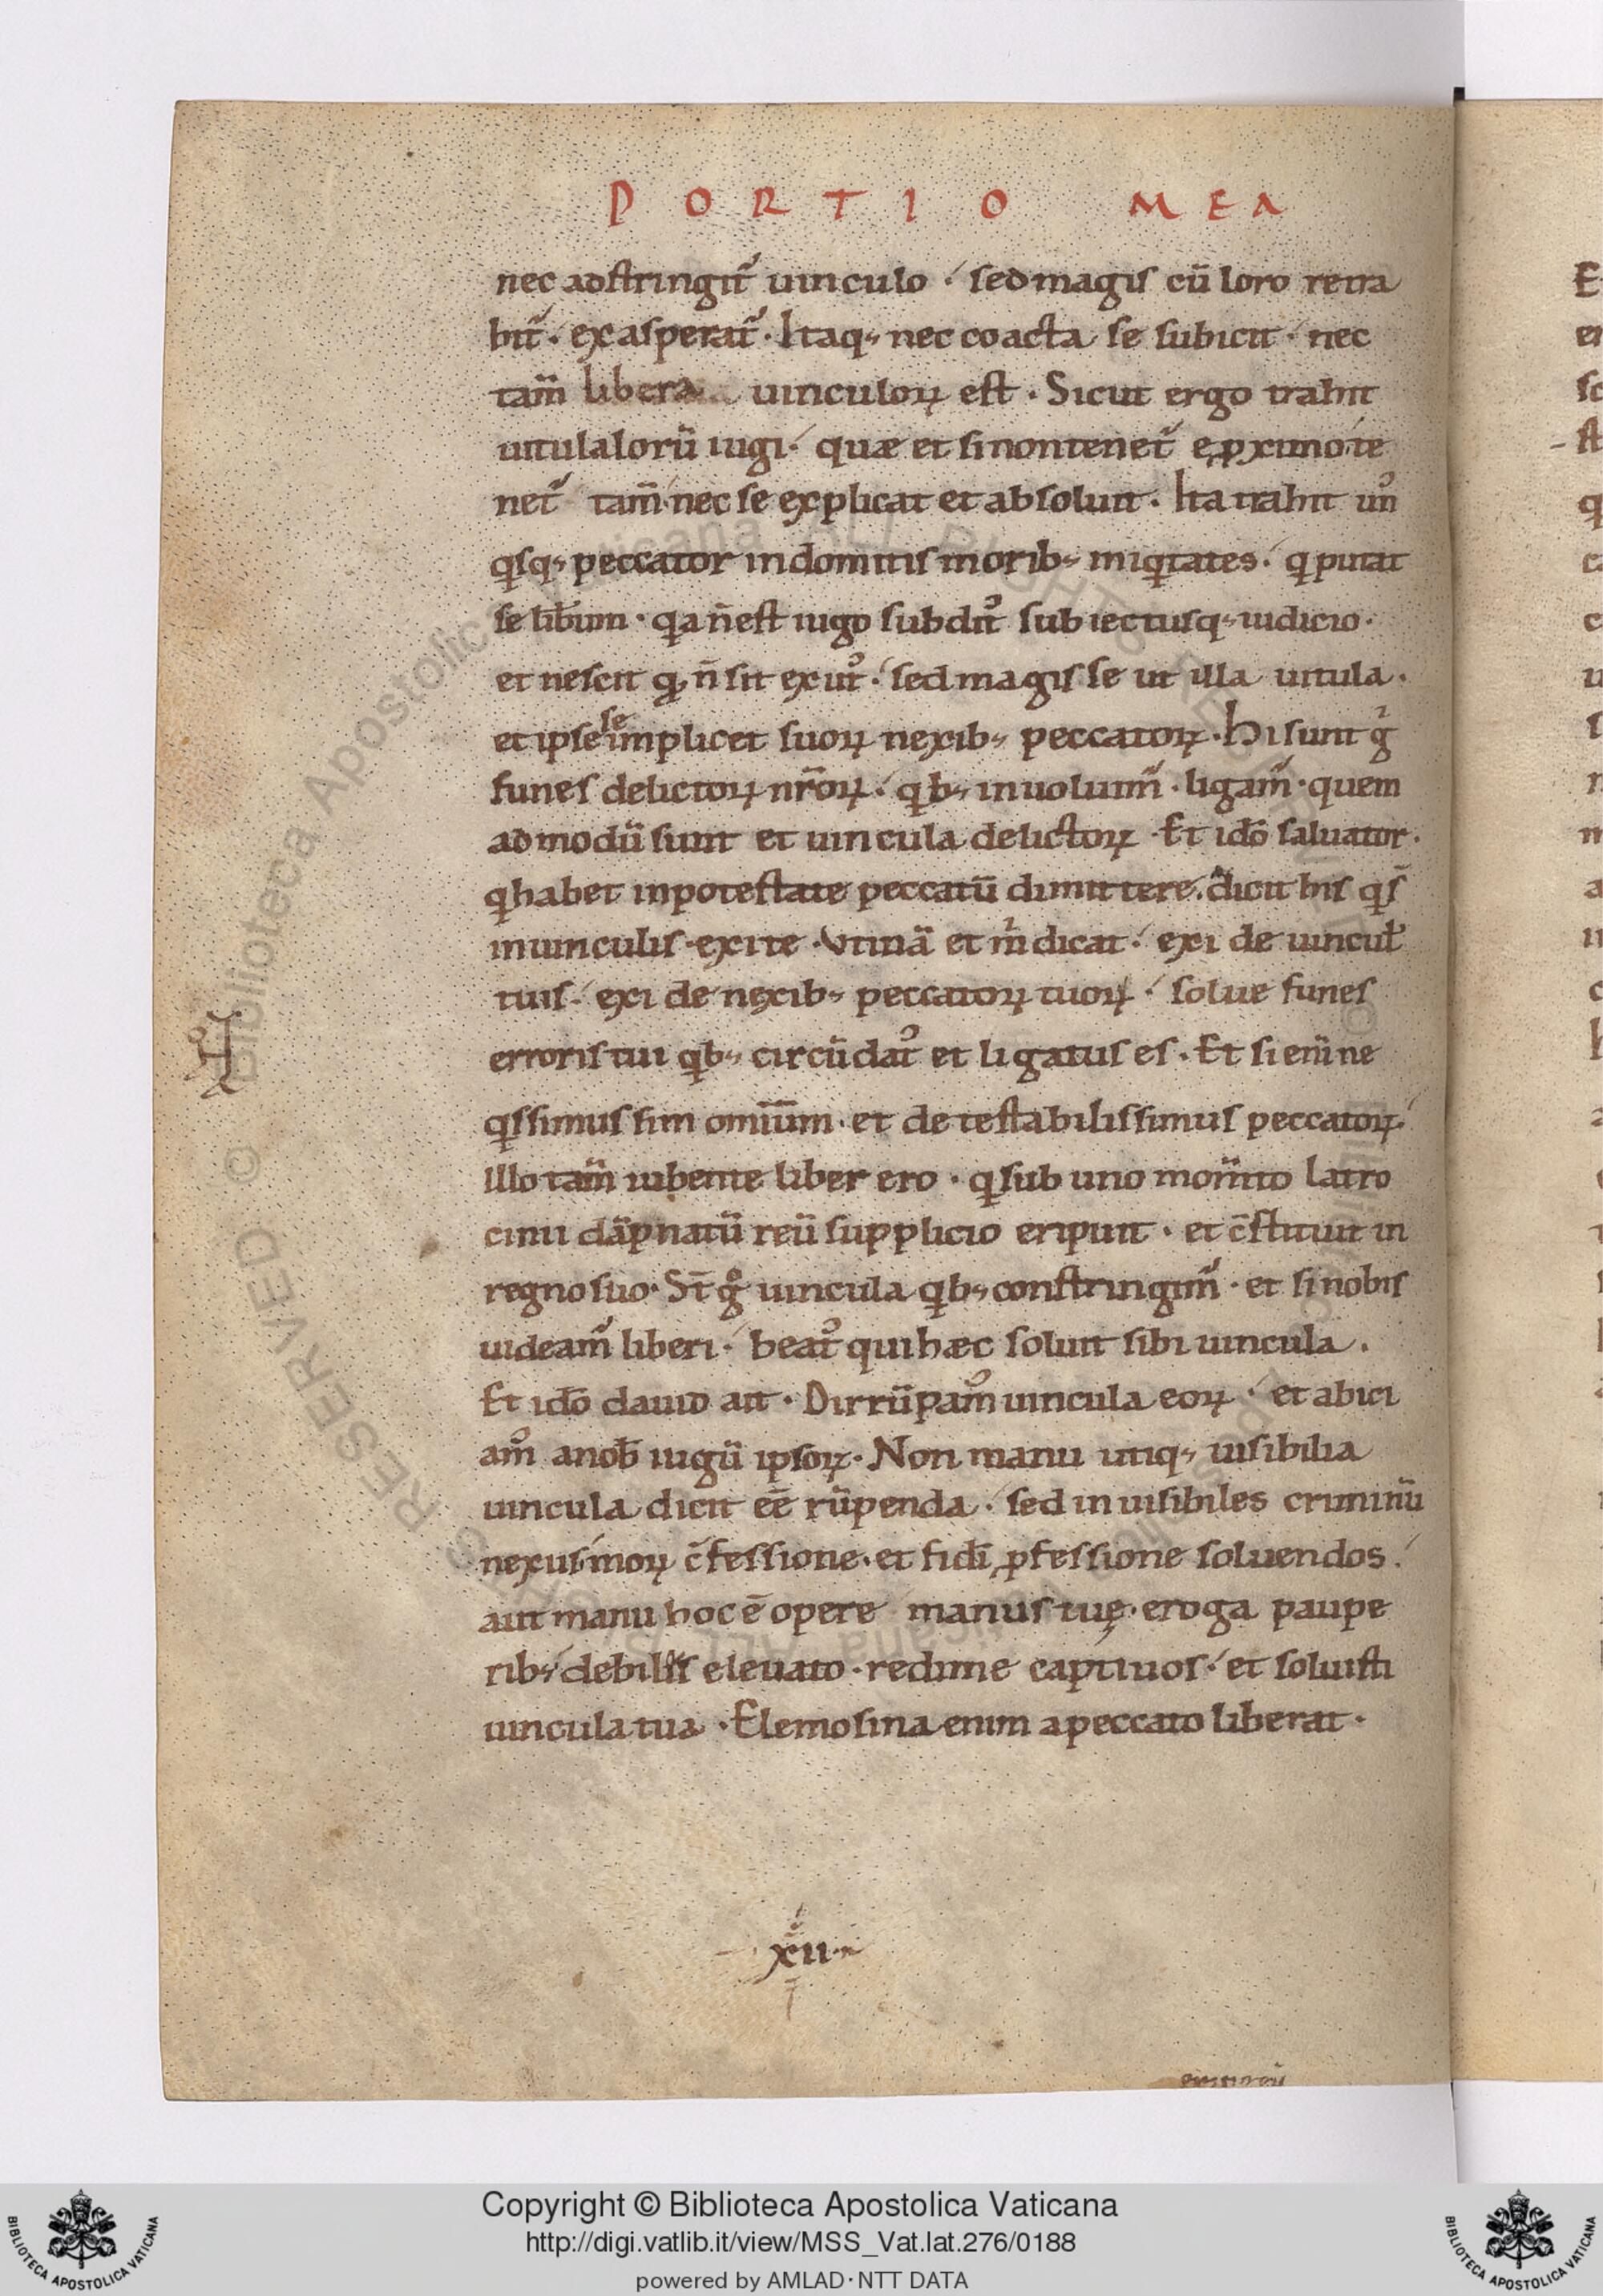 PORTIO MEA
nec adstringit᷑ uinculo · sed magis cū loro retra
hit᷑ · exasperat᷑ · Itaq; nec coacta se subicit · nec
tam̄ libera uinculoꝝ est · Sicut ergo trahit
uitula lorū iugi · quæ et si non tenet᷑ e ꝓximo te
net᷑ tam̄ nec se explicat et absoluit · Ita trahit un᷒
qͥsq; peccator indomitis morib; iniqͥtates · qͥ putat
se lib̄um · qͥa n̄ est iugo subdit᷒ subiectusq; iudicio ·
et nescit qͩ n̄ sit exut᷒ · sed magis se ut illa uitula ·
et ipse se implicet suoꝝ nexib; peccatoꝝ · Hi sunt gͥ
funes delictoꝝ nr̄oꝝ · qͥb; inuoluim᷒ · ligam᷒ · quem
admodū sunt et uincula delictoꝝ · Et ido̅ saluator ·
qͥ habet in potestate peccatū dimittere · dicit his qͥ s̄
in uinculis · exite · Vtinā et mͥ dicat · exi de uincul̄
tuis · exi de nexib; peccatoꝝ tuoꝝ · solue funes
erroris tui qͥb; circūdat᷒ et ligatus es · Et si em̄ ne
qͥssimus sim omīum · et detestabilissimus peccatoꝝ ·
Illo tam̄ iubente liber ero · qͥ sub uno mom̄to latro
cinii dāpnatū reū supplicio eripuit · et c̄stituit in
regno suo · St̄ gͦ uincula qͥb; constringim᷒ · et si nobis
uideam᷒ liberi · beat᷒ qui hæc soluit sibi uincula ·
Et ido̅ dauid ait · Dirrūpam᷒ uincula eoꝝ · et abici
am᷒ a nob̄ iugū ipsoꝝ · Non manu utiq; uisibilia
uincula dicit ee̅ rūpenda · sed inuisibiles criminū
nexus moꝝ c̄fessione · et fidi̅ ꝓfessione soluendos ·
aut manu hoc ē opere manus tuę · eroga paupe
rib; debiles eleuato · redime captiuos · et soluisti
uincula tua · Elemosina enim a peccato liberat ·
xii
Copyright © Biblioteca Apostolica Vaticana
http://digi.vatlib.it/view/MSS_Vat.lat.276/0188
powered by AMLAD·NTT DATA
BIBLIOTECA APOSTOLICA VATICANA
BIBLIOTECA APOSTOLICA VATICANA